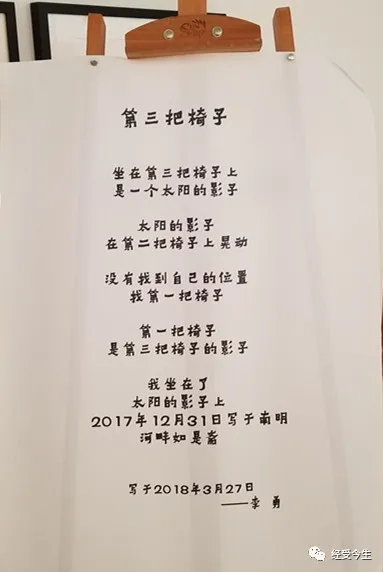 第三把椅子
坐在第三把椅子上
是一个太阳的影子
太阳的影子
在第二把椅子上晃动
没有找到自己的位置
我第一把椅子
第一把椅子
是第三把椅子的影子
我坐在了
太阳的影子上
2017年12月31日写于南明
河畔如是斋
写于2018年3月27日
——李勇
经受今生